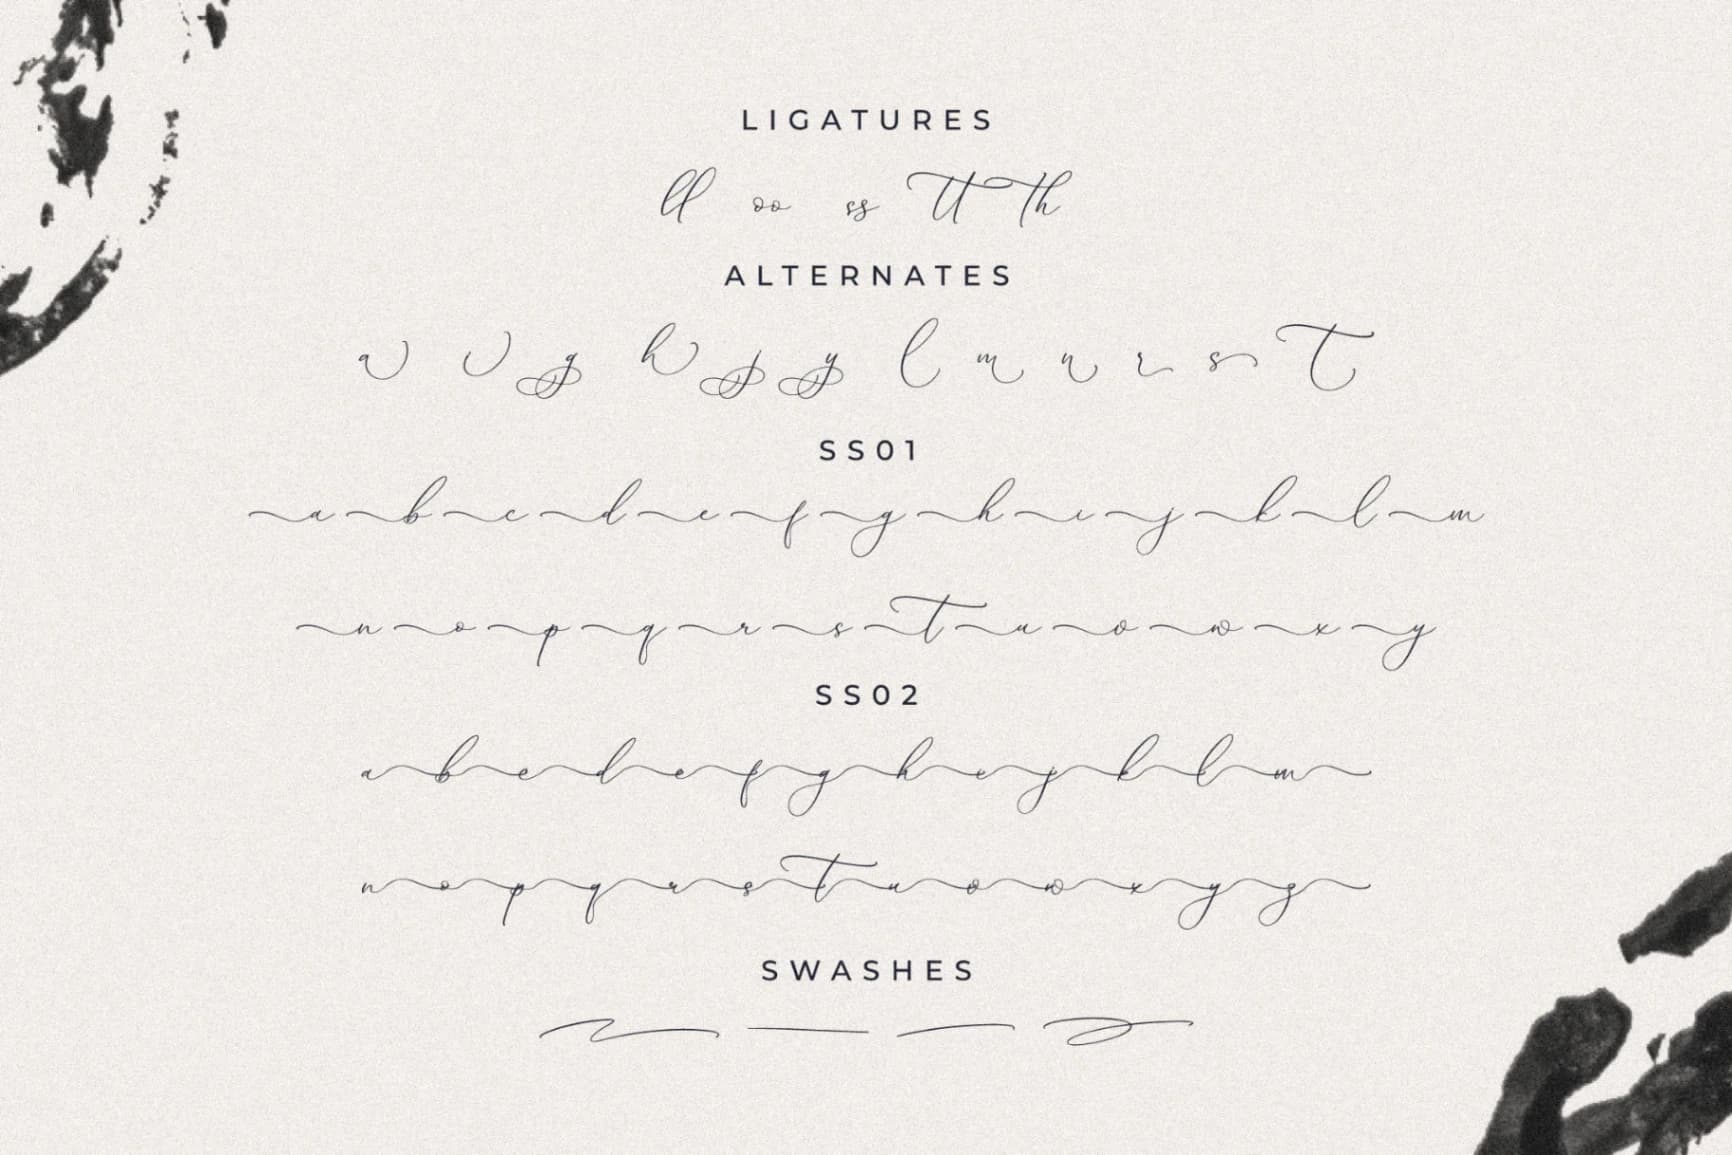 LIGATURES
ll oo ss tt th
ALTERNATES
a g h j y l m n r s t
SS01
a b c d e f g h i j k l m
n o p q r s t u v w x y
SS02
a b c d e f g h i j k l m
n o p q r s t u v w x y z
SWASHES